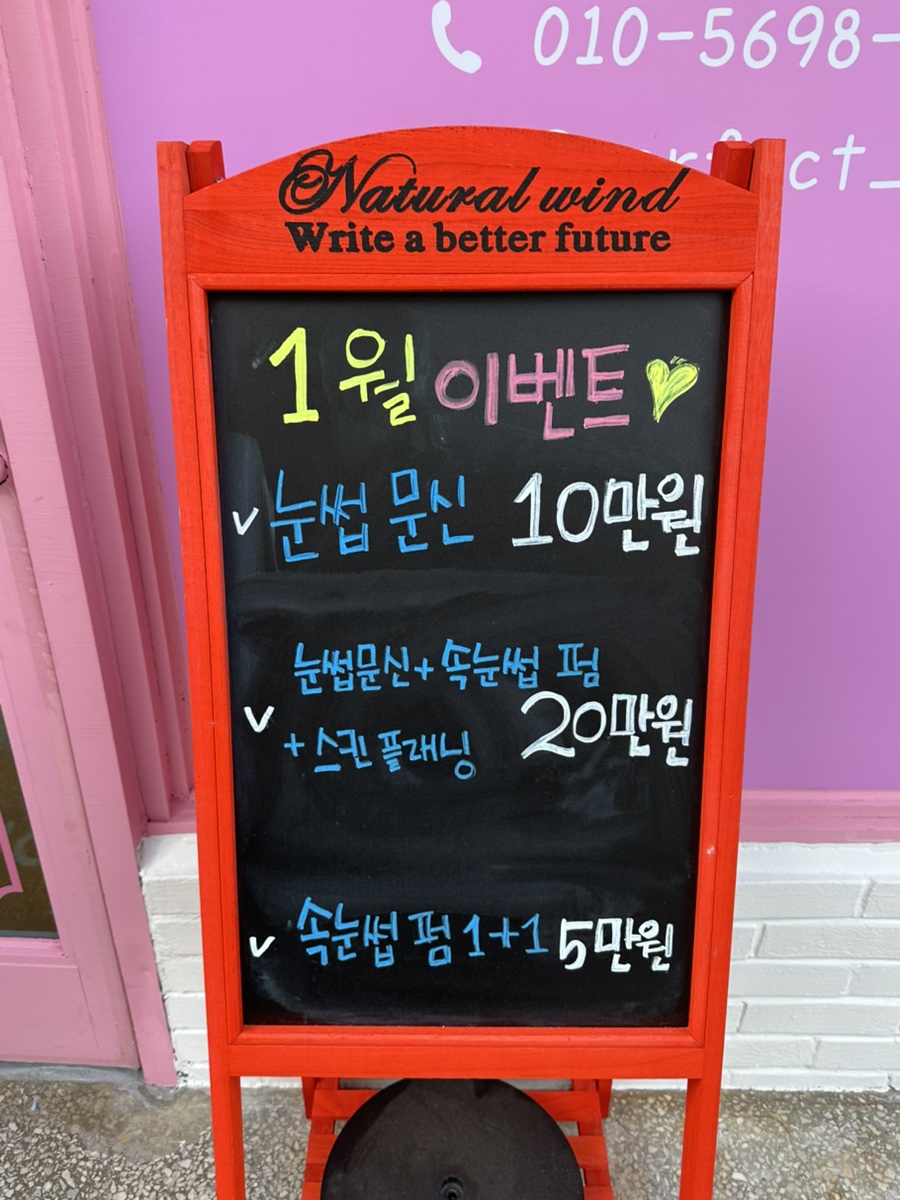 010-5698-
Natural wind
Write a better future
1월 이벤트
눈썹 문신 10만원
눈썹문신+ 속눈썹 펌
+ 스킨 플래닝 20만원
속눈썹 펌 1+1 5만원